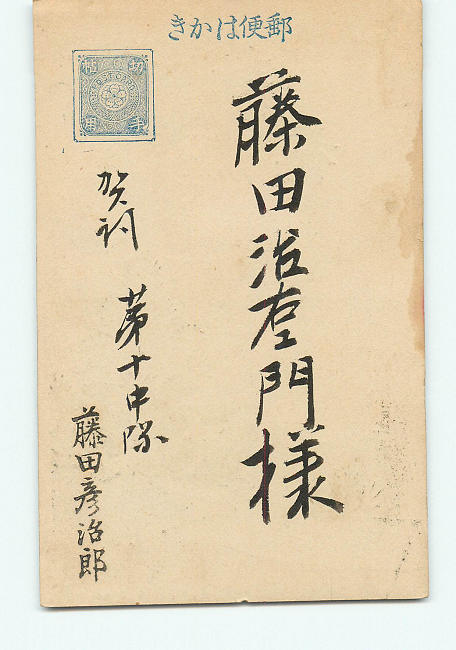 きかは便郵
切手
帖用
藤田治左門様
賀詞
第十中隊
藤田彦治郎